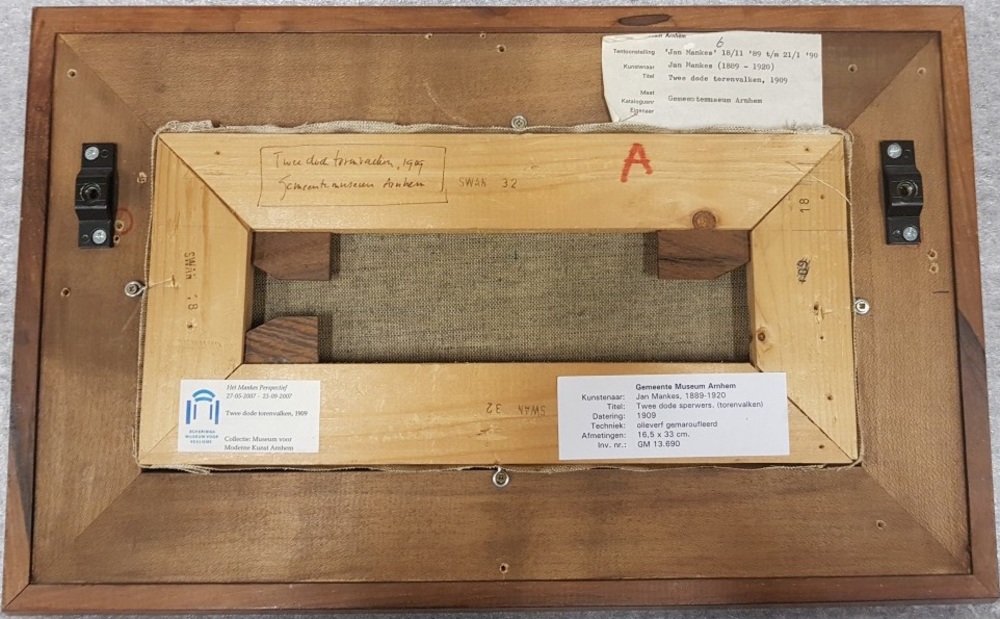 Arnhem
6
Tentoonstelling 'Jan Mankes' 18/11 '89 t/m 21/1 '90
Kunstenaar Jan Mankes (1889 - 1920)
Titel Twee dode torenvalken, 1909
Maat
Katalogusnr
Eigenaar Gemeentemuseum Arnhem
Twee dode torenvalken, 1909
Gemeentemuseum Arnhem
SWAN 32
A
18
SWAN 18
SWAN 32
Het Mankes Perspectief
27-05-2007 - 25-09-2007
Twee dode torenvalken, 1909
Collectie: Museum voor
Moderne Kunst Arnhem
MUSEUM VOOR
Gemeente Museum Arnhem
Kunstenaar: Jan Mankes, 1889-1920
Titel: Twee dode sperwers. (torenvalken)
Datering: 1909
Techniek: olieverf gemaroufleerd
Afmetingen: 16,5 x 33 cm.
Inv. nr.: GM 13.690